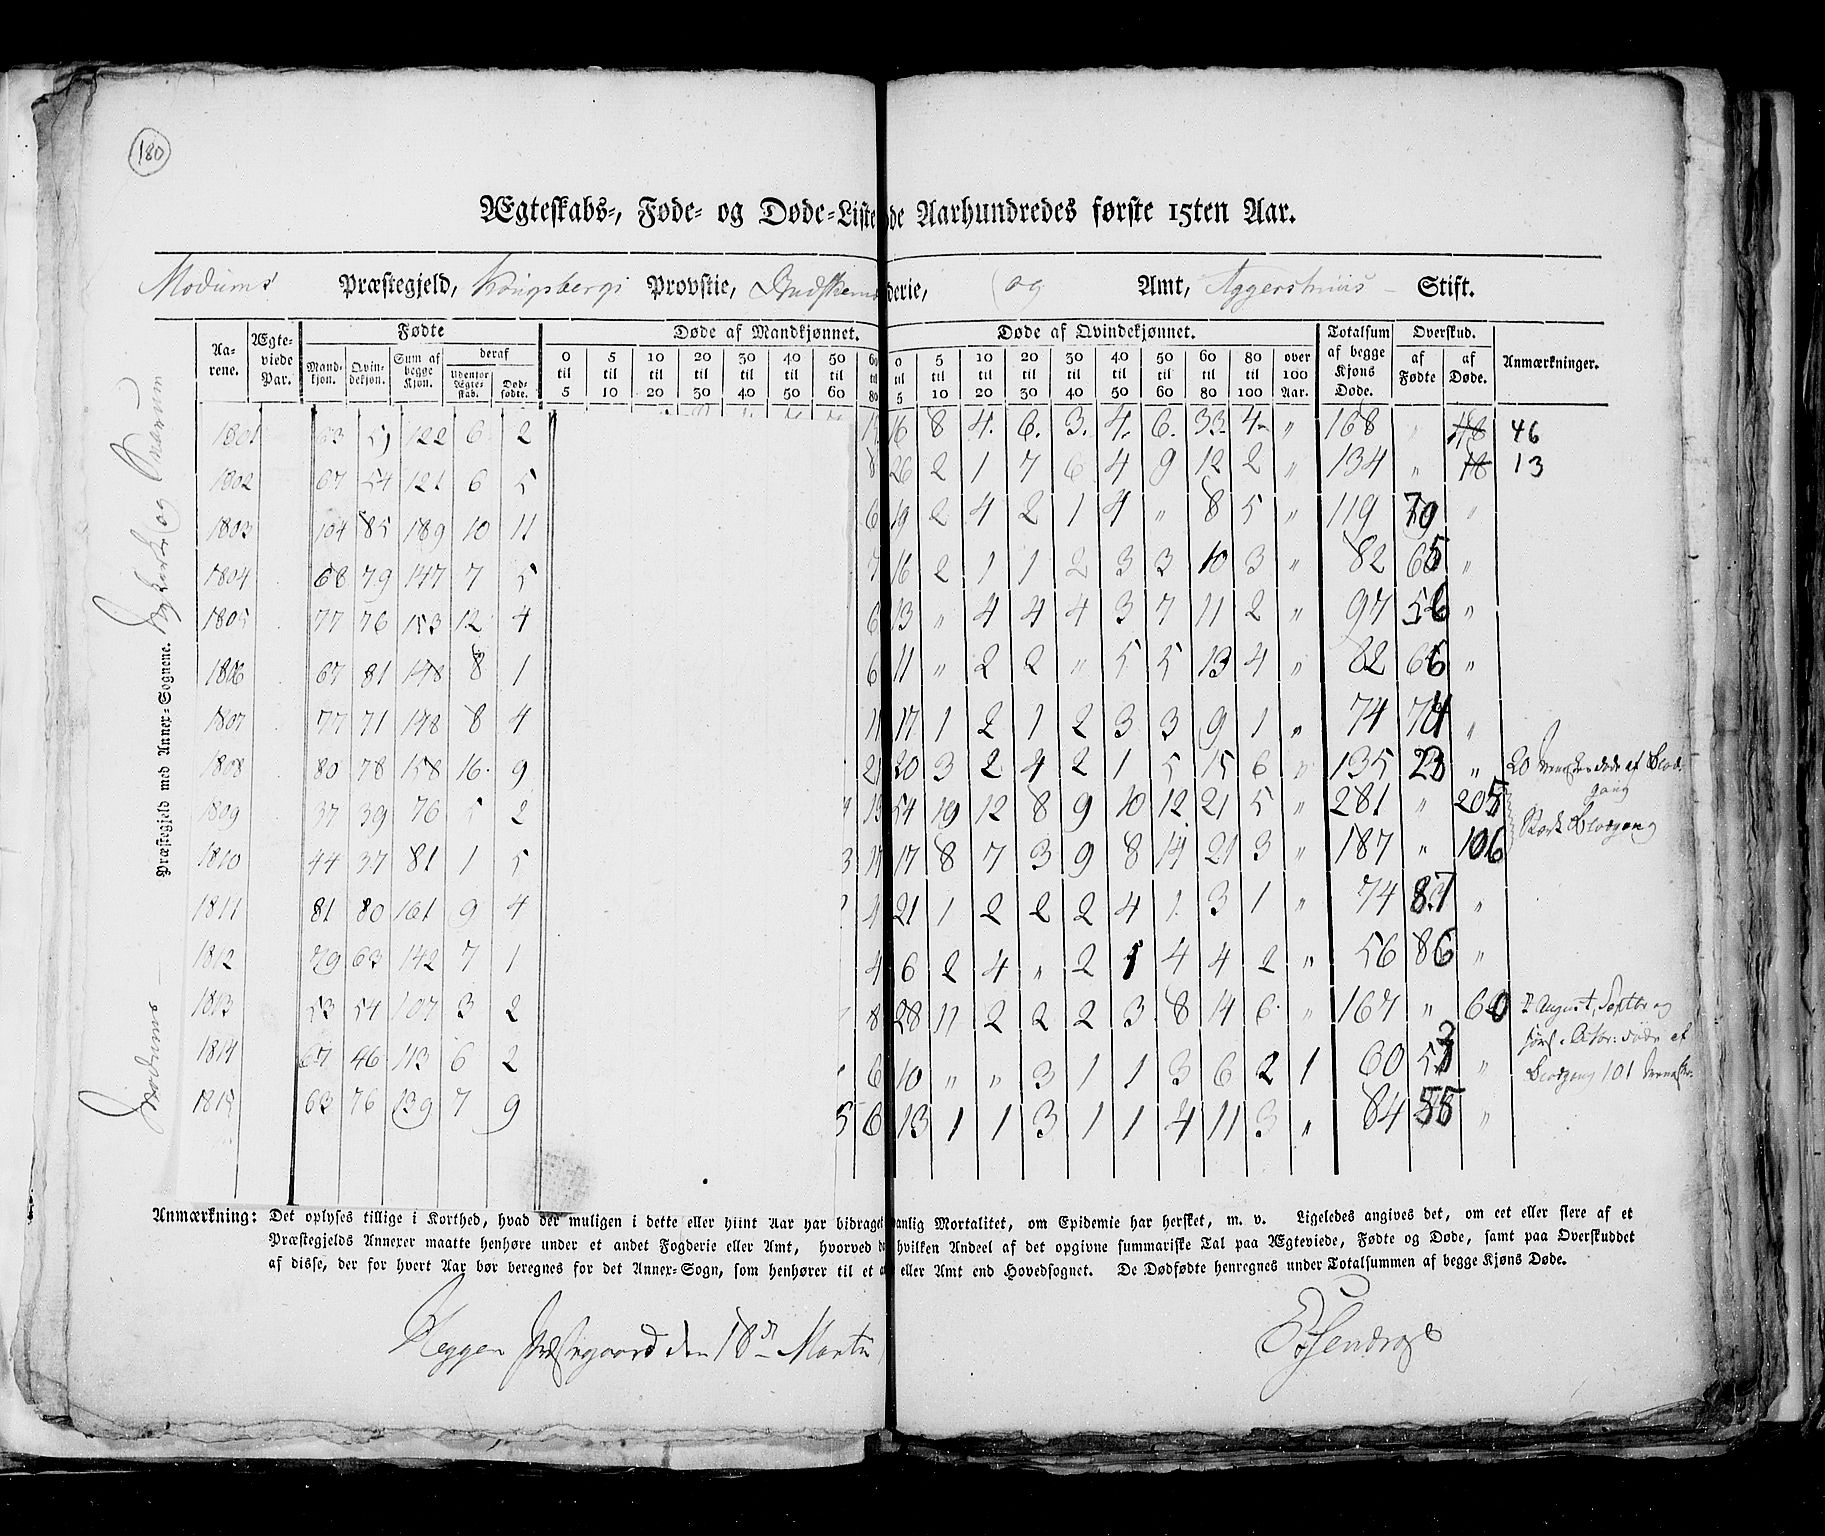 180
Ægteskabs-, Føde- og Døde-Liste de Aarhundredes første 15ten Aar.
Modums Præstegjeld, Kongsbergs Provstie, derie, og Amt, Aggershuus Stift.
Aa-rene. Ægte-viede Par. Fødte Døde af Mandkjønnet. Døde af Qvindekjønnet. Totalsum af begge Kjøns Døde. Overskud. Anmærkninger.
Mand-kjøn. Qvin-dekjøn. Sum af begge Kjøn. deraf Udenfor Ægte-skab. Død-fødte. 0 til 5 5 til 10 10 til 20 20 til 30 30 til 40 40 til 50 50 til 60 60 til 80 0 til 5 5 til 10 10 til 20 20 til 30 30 til 40 40 til 50 50 til 60 60 til 80 80 til 100 over 100 Aar. af Fødte af Døde.
1801 122 6 2 16 8 4. 6. 3. 4. 6. 33. 4 " 168 " 48 46
1802 67 54 121 6 5 8 26 2 1 7 6 4 9 12 2 " 134 " 18 13
1803 104 85 189 10 11 6 19 2 4 2 1 4 " 8 5 " 119 70 "
1804 68 79 147 7 5 7 16 2 1 1 2 3 3 10 3 " 82 65 "
1805 77 76 153 12 4 6 13 " 4 4 4 3 7 11 2 " 97 56 "
1806 67 81 148 8 1 6 11 " 2 2 " 5 5 13 4 " 82 66 "
1807 77 71 148 8 4 11 17 1 2 1 2 3 3 9 1 " 74 74 "
1808 80 78 158 16 9 21 20 3 2 4 2 1 5 15 6 " 135 23 " 20 Mennesker døde af Blod-
gang
1809 37 39 76 5 2 13 54 19 12 8 9 10 12 21 5 " 281 " 205
Stærk Blodgang
1810 44 37 81 1 5 3 17 17 8 7 3 9 8 14 21 3 " 187 " 106
1811 81 80 161 9 4 4 21 1 2 2 2 4 1 3 1 " 74 87 "
1812 79 63 142 7 1 4 6 2 4 " 2 1 4 4 2 " 56 86 "
1813 53 54 107 3 2 8 28 11 2 2 2 3 8 14 6 " 167 " 60 I August, Septbr og
først. Octbr: døde af
1814 67 46 113 6 2 6 10 " " 3 1 1 3 6 2 1 60 53 " Blodgang 101 Mennesker.
1815 63 76 139 7 9 5 6 13 1 1 3 1 1 4 11 3 " 84 55 "
Modums Præstegjeld med Annex-Sognene. Nykirke og Snarum
Anmærkning: Det oplyses tillige i Korthed, hvad der muligen i dette eller hiint Aar har bidraget anlig Mortalitet, om Epidemie har hersket, m. v. Ligeledes angives det, om eet eller flere af et
Præstegjelds Annexer maatte henhøre under et andet Fogderie eller Amt, hvorved hvilken Andeel af det opgivne summariske Tal paa Ægteviede, Fødte og Døde, samt paa Overskuddet
af disse, der for hvert Aar bør beregnes for det Annex-Sogn, som henhører til et eller Amt end Hovedsognet. De Dødfødte henregnes under Totalsummen af begge Kjøns Døde.
Heggen Præstegaard den 18d Martii